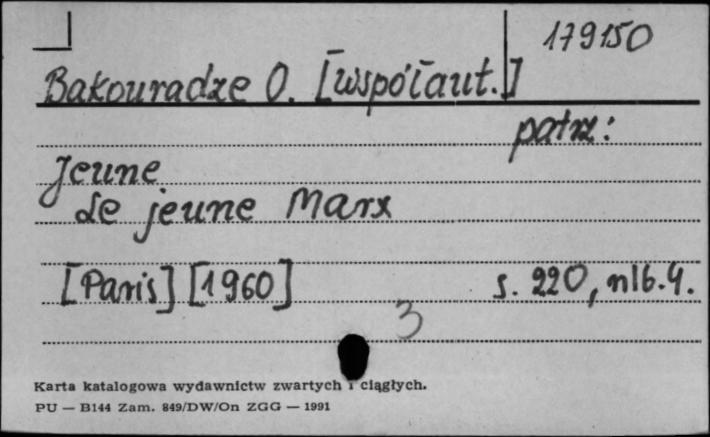 179150
Bakouradze O. [współaut.]
patrz:
Jeune
Le jeune Marx
[Paris] [1960] s. 220, nlb. 4.
3
Karta katalogowa wydawnictw zwartych i ciągłych.
PU — B144 Zam. 849/DW/On ZGG — 1991